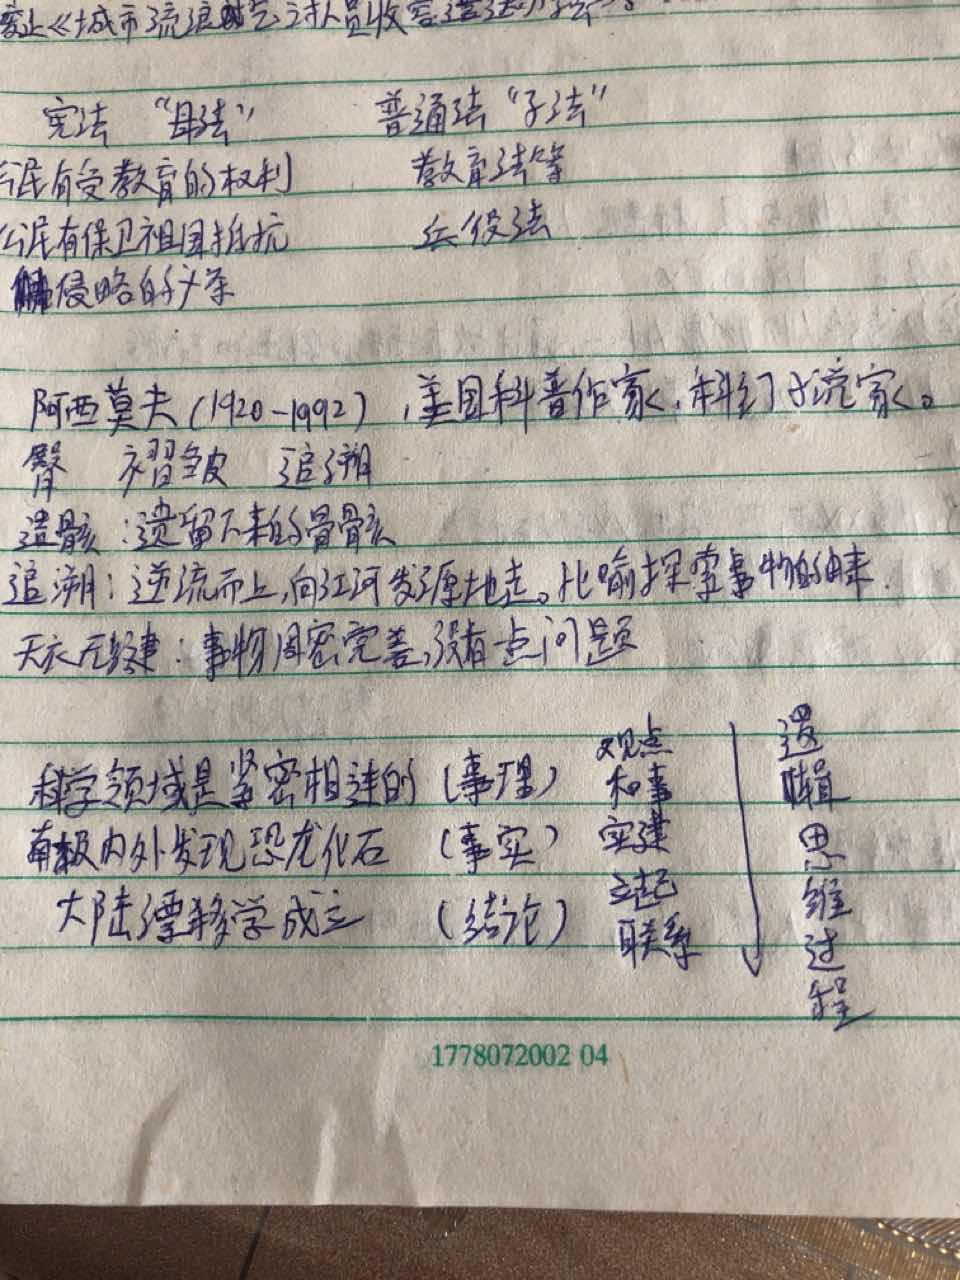 《城市流浪乞讨人员收容遣送办法》
宪法 “母法” 普通法 “子法”
公民有受教育的权利 教育法等
公民有保卫祖国抵抗 兵役法
侵略的义务
阿西莫夫(1920-1992),美国科普作家,科幻小说家。
臀 褶皱 追溯
遗骸:遗留下来的骨骸
追溯:逆流而上,向江河发源地走。比喻探索事物的由来.
天衣无缝:事物周密完善,没有一点问题
科学领域是紧密相连的 (事理)
南极内外发现恐龙化石 (事实)
大陆漂移学成立 (结论)
观点
和事
实建
立起
联系
逻
辑
思
维
过
程
1778072002 04